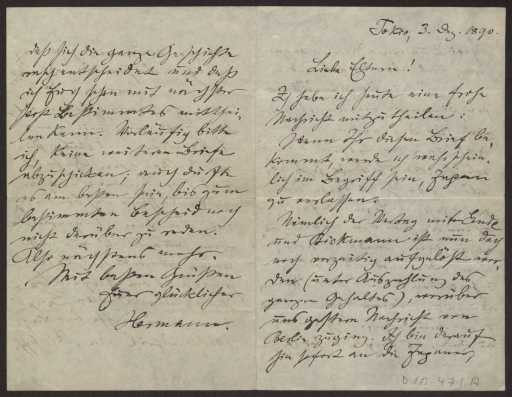 Tokio, 3. Dez. 1890.
Liebe Eltern!
habe ich Heute eine frohe
Nachricht mitzutheilen:
Wenn Ihr diesen Brief be-
kommt, werde ich wahrschein-
lich im Begriff sein, Japan
zu verlassen.
Nämlich der Vertrag mit Ende
und Böckmann ist nun doch
noch vorzeitig aufgelöst wor-
den (unter Auszahlung des
ganzen Gehaltes), worüber
uns gestern Nachricht von
Berlin zuging. Ich bin darauf
hin sofort an die Japaner,
daß sich die ganze Geschichte
rasch entscheidet und daß
ich Euch schon mit nächster
Post Bestimmtes mitthei-
len kann. Vorläufig bitte
ich, keine weiteren Briefe
abzuschicken; auch dürfte
es am besten sein, bis zum
bestimmten Bescheid noch
nicht darüber zu reden.
Also nächstens mehr.
Mit besten Grüßen
Euer glücklicher
Hermann.